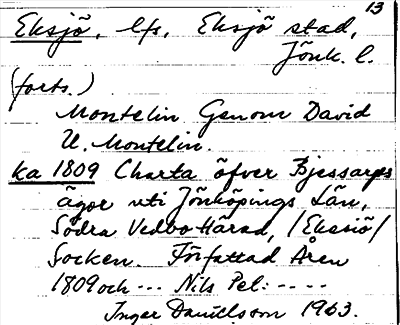 13
Eksjö, lfs, Eksjö stad,
Jönk. l.
(forts.)
Montelin Genom David
U. Montelin.
ka 1809 Charta öfver Bjessarps
ägor uti Jönköpings Län,
Södra Vedbo Härad, /Eksiö/
Socken. Författad Åren
1809 och --- Nils Pel: ----
Inger Danielsson 1963.